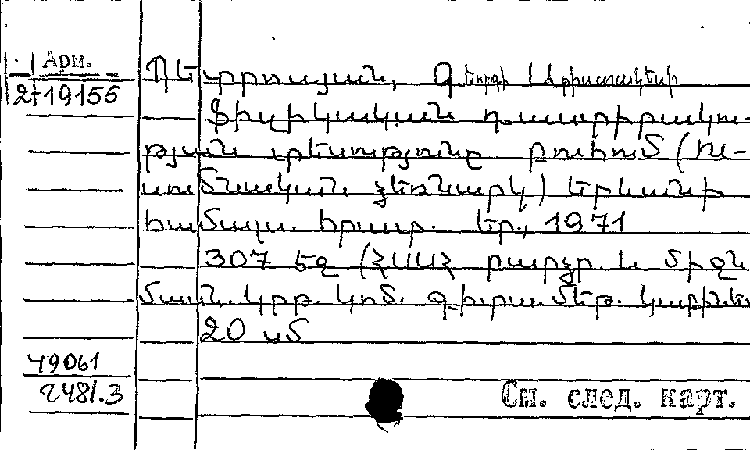 Арм.
2+19155
Պետրոսյան, Գեորգի Արիստակեսի
Ֆիզիկական դաստիրակու-
թյան տեսությունը բուհում (Ու-
սումնական ձեռնարկ) Երևանի
համալս. հրատ. Եր., 1971
307 էջ (ՀՍՍՀ բարձր. և միջն.
մասն. կրթ. կոմ. գիտա. մեթ. կաբինետ
20 սմ
49061
2481.3
См. след. карт.